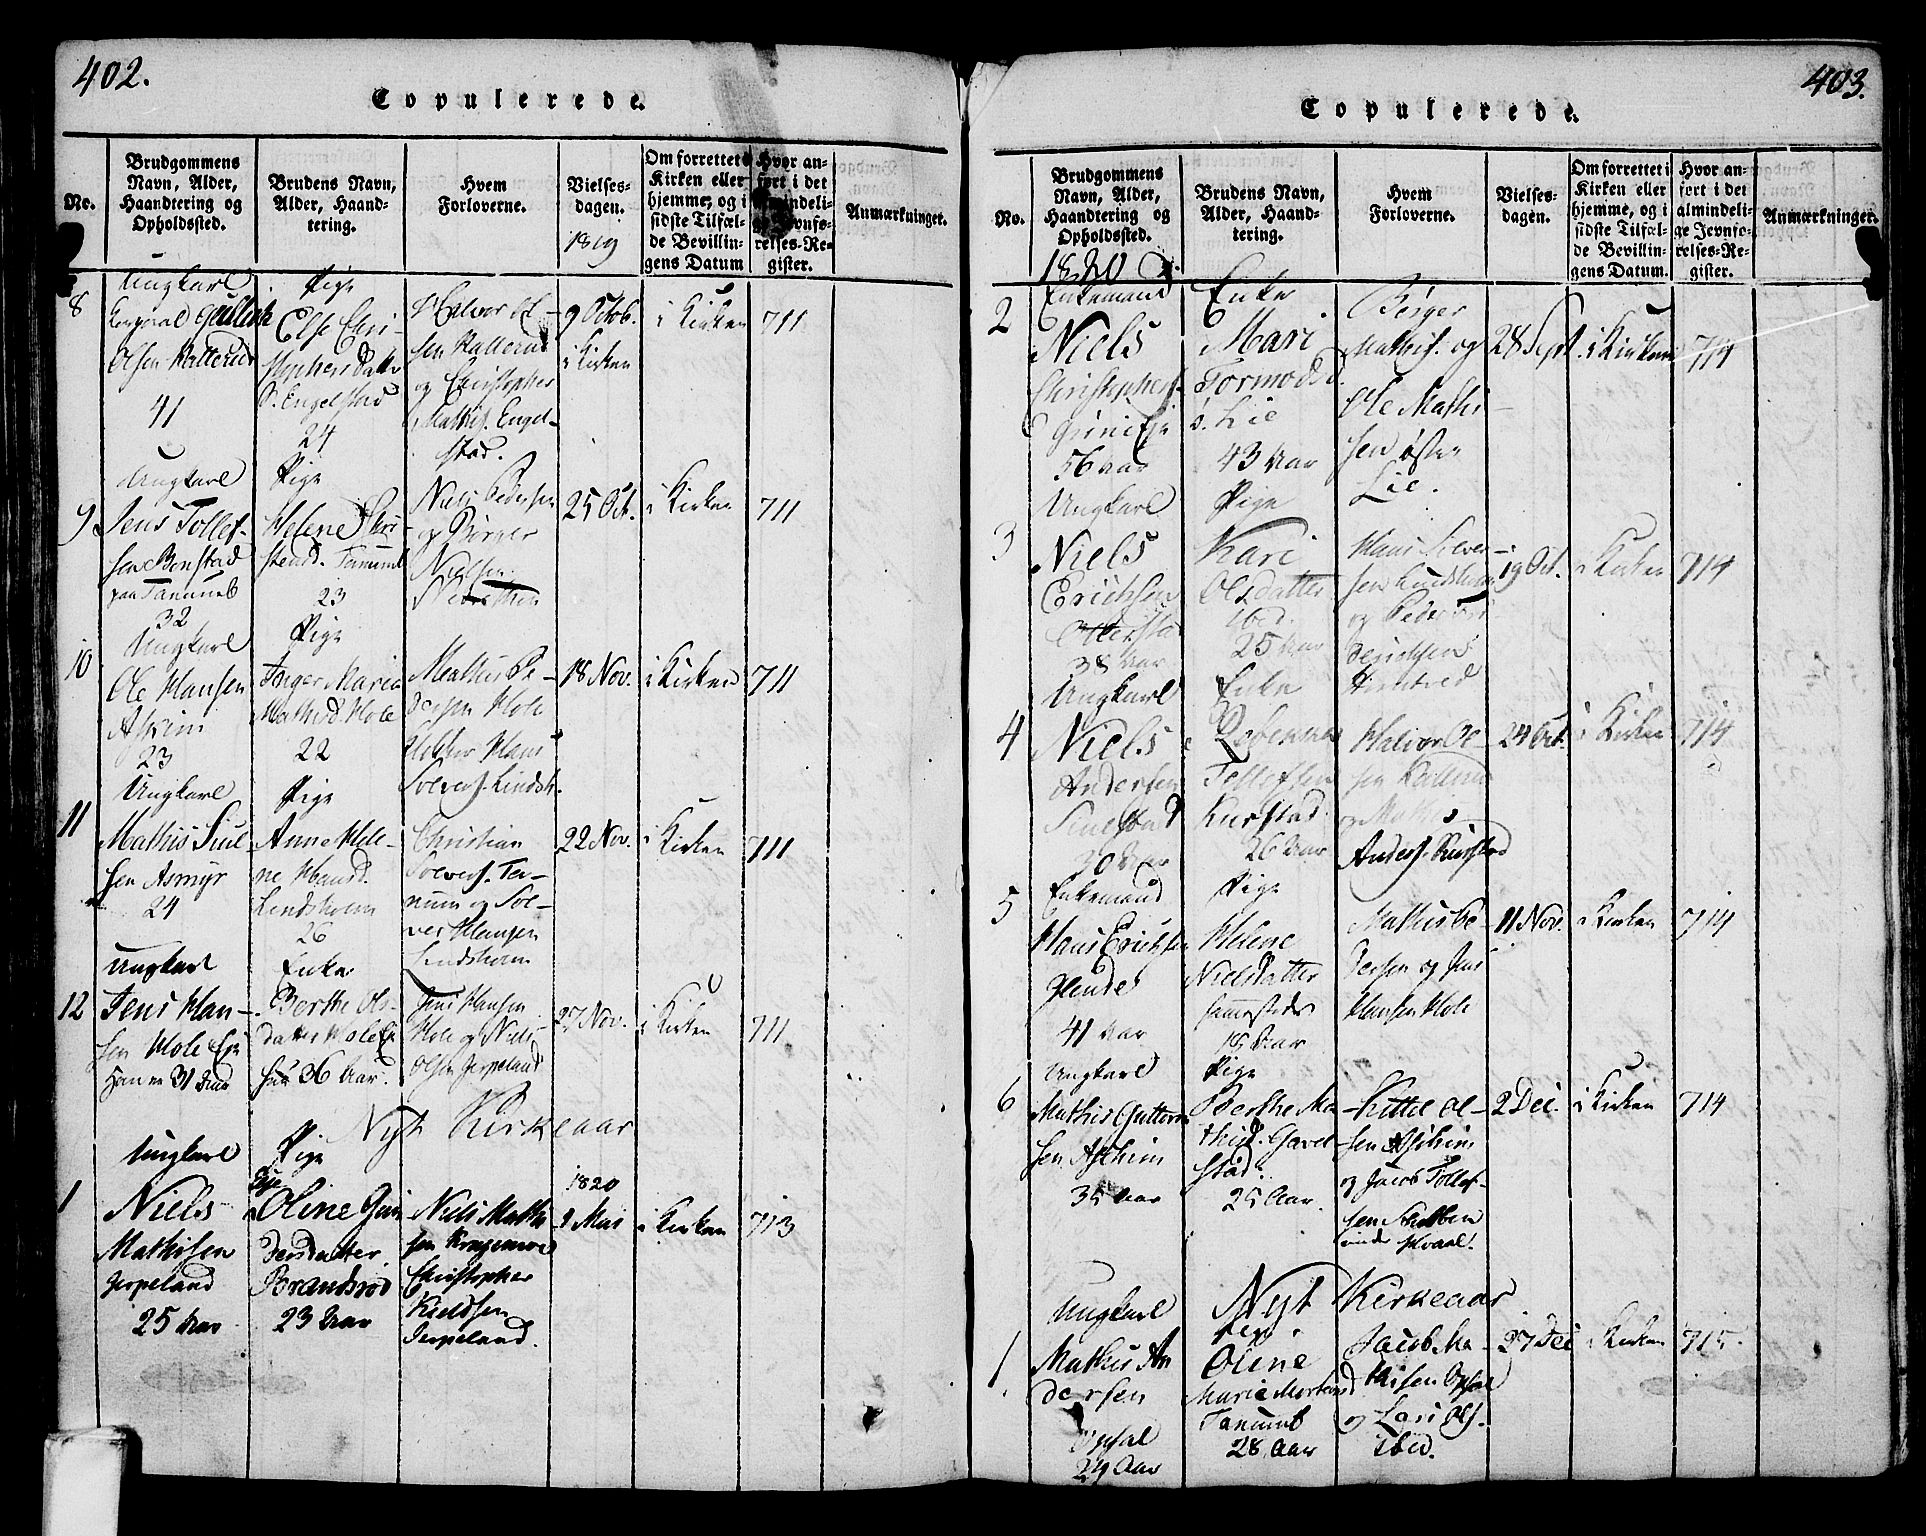 402.
Copulerede.
No.
Brudgommens
Navn, Alder,
Haandtering og
Opholdssted.
Brudens Navn,
Alder, Haand-
tering.
Hvem
Forloverne.
Vielses-
dagen.
1819
Om forrettet i
Kirken eller
hjemme, og i
sidste Tilfæl-
de Bevillin-
gens Datum
Hvor an-
ført i det
almindeli-
ge Jevnfø-
relses-Re-
gister.
Anmærkninger.
8
Ungkarl
Korporal
Olsen
41
Pige
Else Chri-
stophersdatter
Engelstad
24
Halvor Ol-
sen
og Christopher
Mathis. Engel-
stad.
9 Octob.
i Kirken
i Kirken
711
9
Ungkarl
Jens Tollef-
sen Bonstad
paa Tanum
32
Pige
Helene Chri-
stensd. Tanum
23
Niels Pedersen
og Börger
Nielsen
25 Oct.
i Kirken
711
10
Ungkarl
Ole Hansen
Askim
23
Pige
Inger Maria
Mathisd. Hole
22
Mathis Pe-
dersen Hole
Hans
Solvers. Lindsh.
18 Nov.
i Kirken
711
11
Ungkarl
Mathis
sen Asmyr
24
Pige
Anne Hele-
ne Hansd.
Lindsholm
26
Christian
Solvers. Ta-
num og Sol-
ver Hansen
Lindsholm
22 Nov.
i Kirken
711
12
Ungkarl
Jens Han-
sen Hole Eje
Han er 31 Aar
Enke
Berthe Ols-
datter Hole Eje
hun 36 Aar.
Jens Hansen
Hole og Niels
Olsen Jerpeland
27 Nov.
i Kirken
711
Nyt Kirkeaar
1
Ungkarl
Niels
Mathisen
Jerpeland
25 Aar
Pige
Oline Gun-
dersdatter
Brandsrod
23 Aar
Niels Mathi-
sen
Christopher
Kieldsen
Jerpeland.
1820
Mai
i Kirken
713
403.
Copulerede.
No.
Brudgommens
Navn, Alder,
Haandtering og
Opholdssted.
1820
Brudens Navn,
Alder, Haand-
tering.
Hvem
Forloverne.
Vielses-
dagen.
Om forrettet i
Kirken eller
hjemme, og i
sidste Tilfæl-
de Bevillin-
gens Datum.
Hvor an-
ført i det
almindeli-
ge Jevnfø-
relses-Re-
gister.
Anmærkninger.
2
Enkemand
Niels
Christophers.
56 Aar
Enke
Mari
Tormodsd.
Lie
43 Aar
Börger
Mathis. og
Ole Mathi-
sen øster
Lie.
28 Sept.
i Kirken
714
3
Ungkarl
Niels
Erichsen
Otterstad
38 Aar
Pige
Kari
Olsdatter
ibid.
25 Aar
Hans Solver-
sen Lindsholm
og Peder
Himtved
19 Oct.
i Kirken
714
4
Ungkarl
Niels
Andersen
30 Aar
Enke
Tollefsen
Kurstad
26 Aar
Halvor Ol-
sen
og Mathis
Anders. Kurstad
24 Oct.
i Kirken
714
5
Enkemand
Hans Erichsen
Glende
41 Aar
Pige
Helene
Nielsdatter
sammesteds
18 Aar
Mathis Pe-
dersen og Jens
Hansen Hole
11 Nov.
i Kirken
714
6
Ungkarl
Mathis Guttorm-
sen Askim
35 Aar
Pige
Berthe Ma-
thisd. Gavel-
stad.
25 Aar.
Kittel Ol-
sen Askim
og Jacob Tollef-
sen Stubben
under Hvaal.
2 Dec.
i Kirken
714
Nyt Kirkeaar
1.
Ungkarl
Mathis An-
dersen
Opsal
29 Aar
Pige
Oline
Marie Mortensd
Tanum
28 Aar
Jacob Ma-
thisen Opsal
og Lars Ols.
ibid.
27 Dec
i Kirken
715.